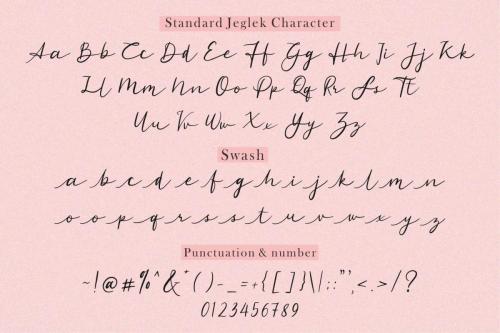 Standard Jeglek Character
Aa Bb Cc Dd Ee Ff Gg Hh Ii Jj Kk
Ll Mm Nn Oo Pp Qq Rr Ss Tt
Uu Vv Ww Xx Yy Zz
Swash
a b c d e f g h i j k l m n
o o p q r s s t u v w x y z
Punctuation & number
~!@#%^&*()-_=+{[]}\|;:"',<.>/?
0123456789